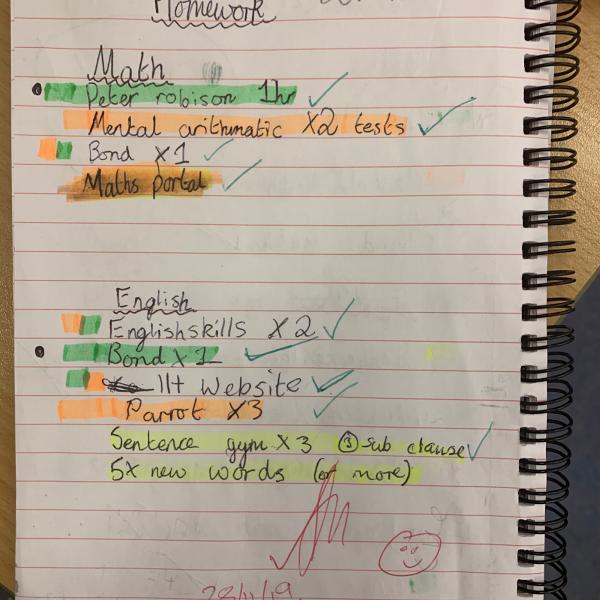 Homework
Math
Peter robison 1hr
Mental arithmatic X2 tests
Bond X1
Maths portal
English
Englishskills X2
Bond x 1
11+ Website
Parrot X3
Sentence gym X3 ③ sub clause
5x new words (or more)